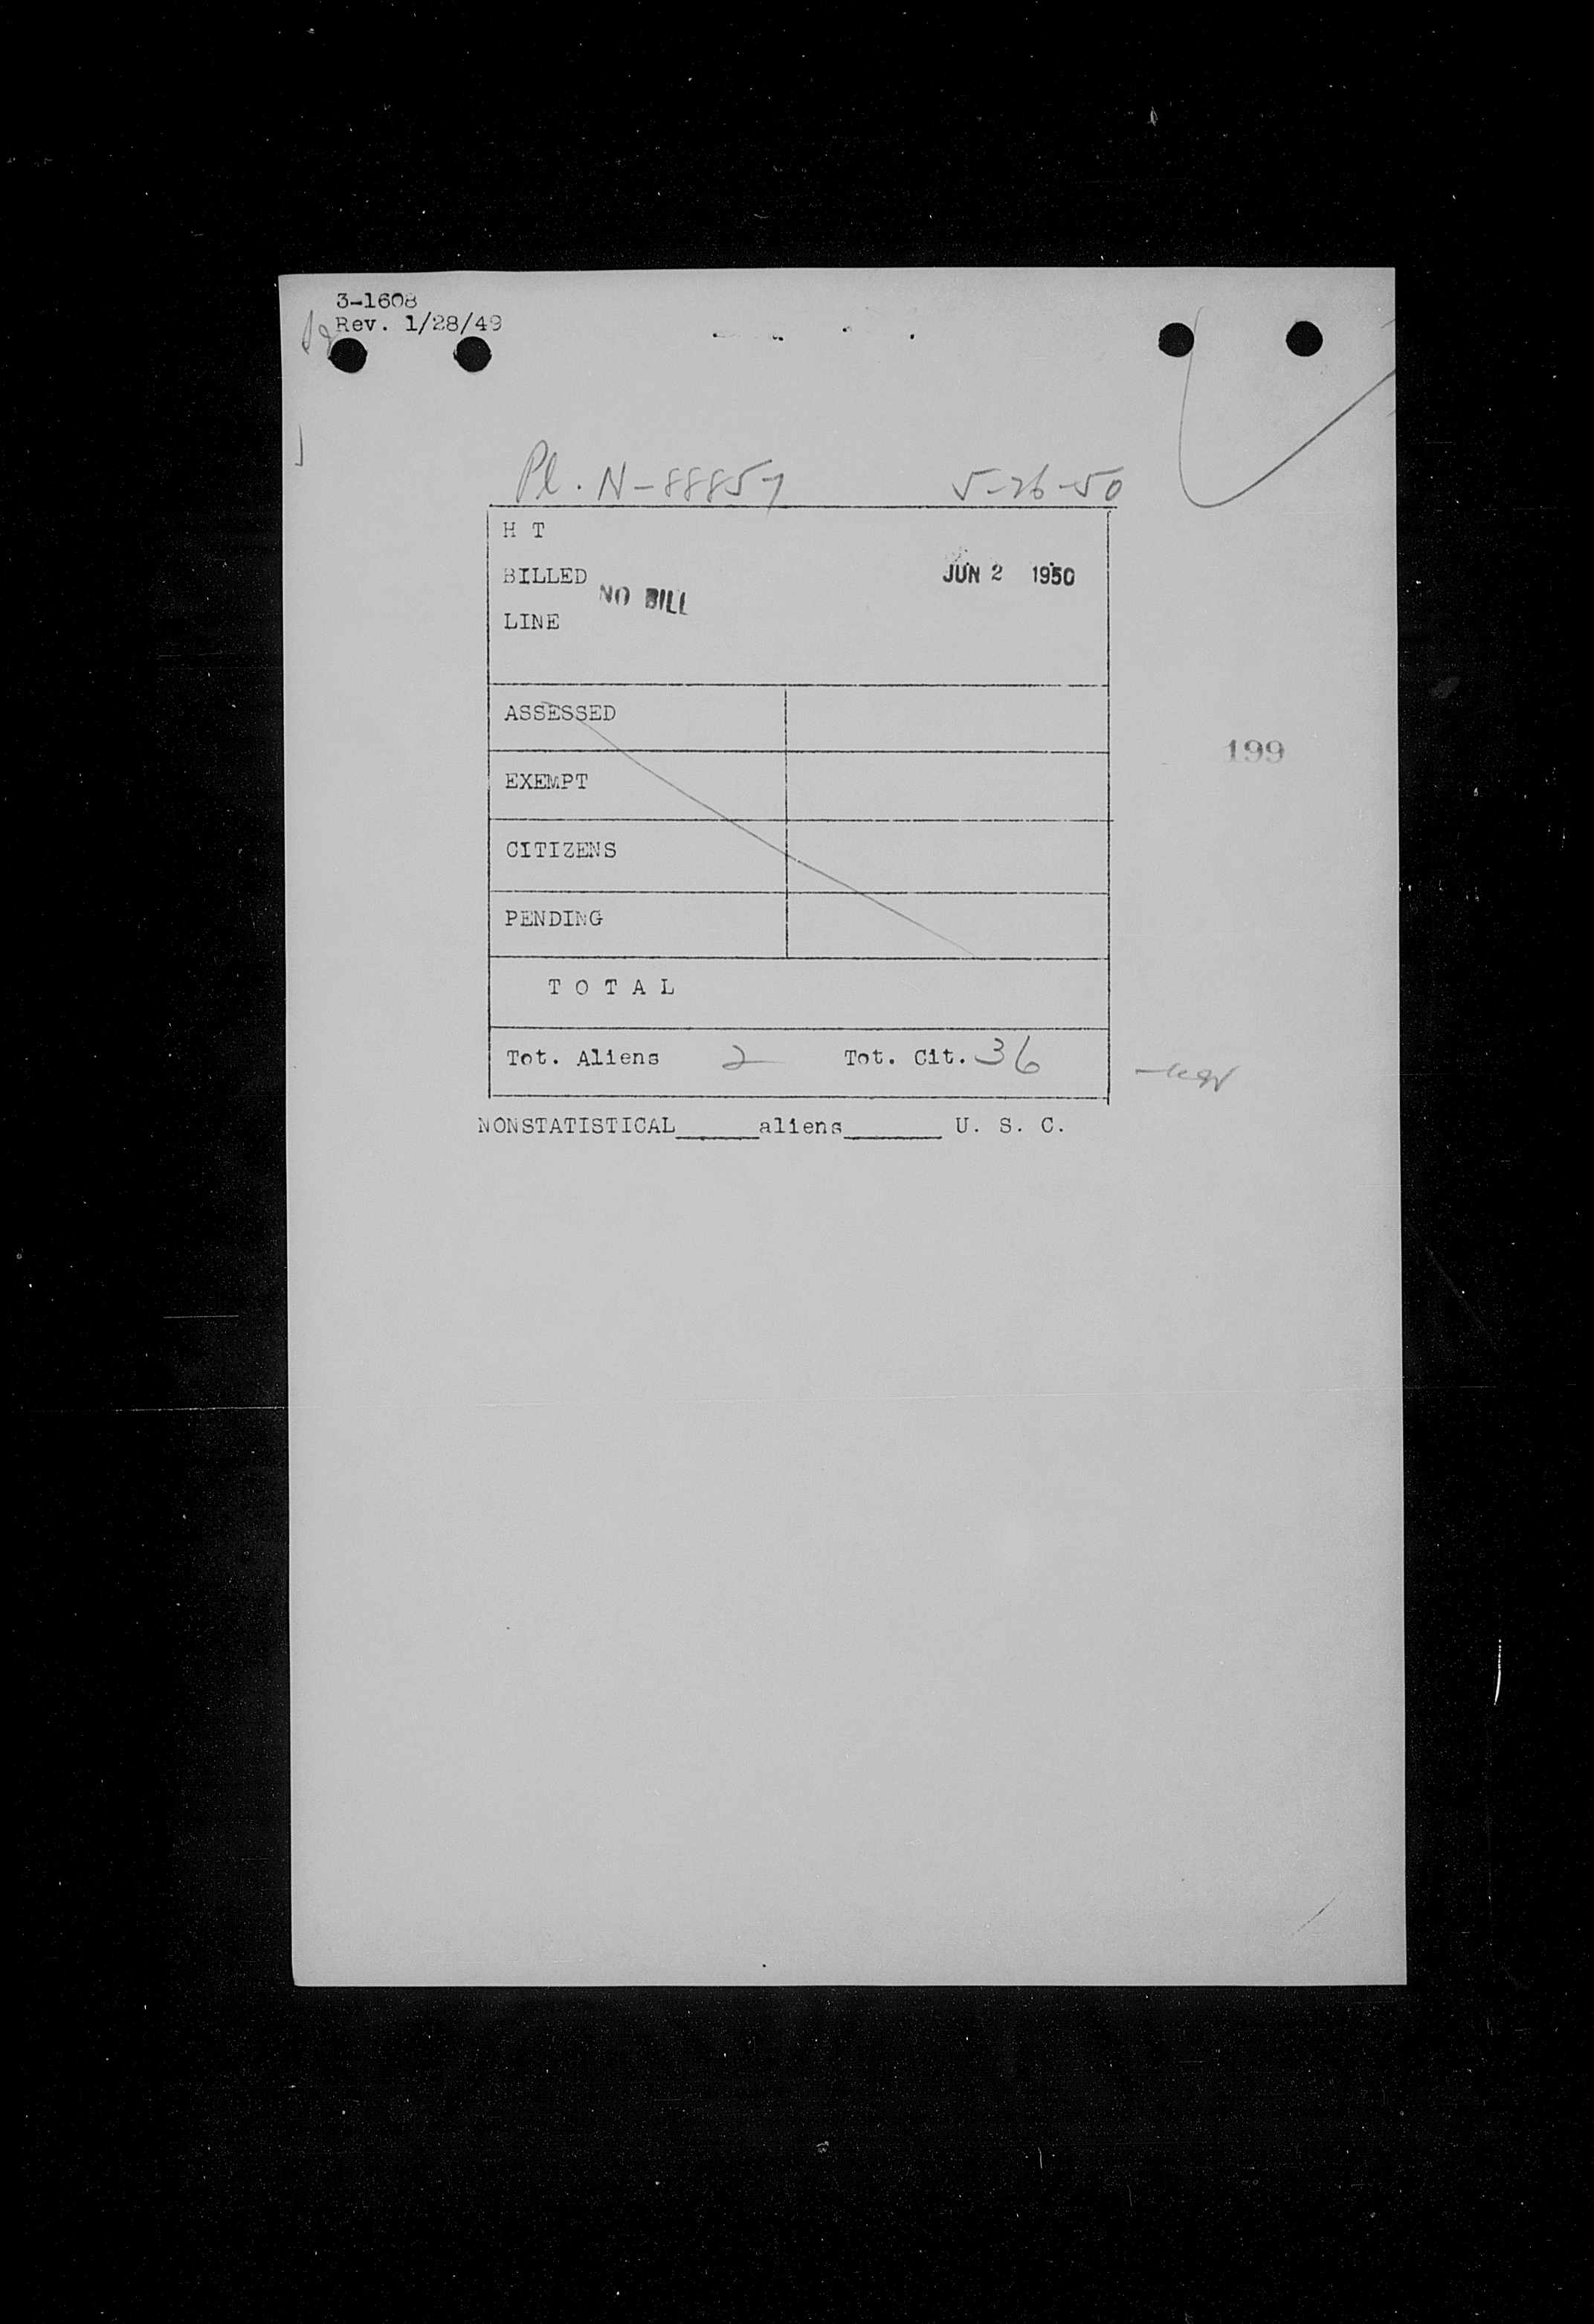 3-1608
Rev. 1/28/49
Pl. N-88857 5-26-50
H T
BILLED JUN 2 1950
NO BILL
LINE
ASSESSED
199
EXEMPT
CITIZENS
PENDING
T O T A L
Tot. Aliens 2 Tot. Cit. 36
NONSTATISTICAL______aliens_______ U. S. C.